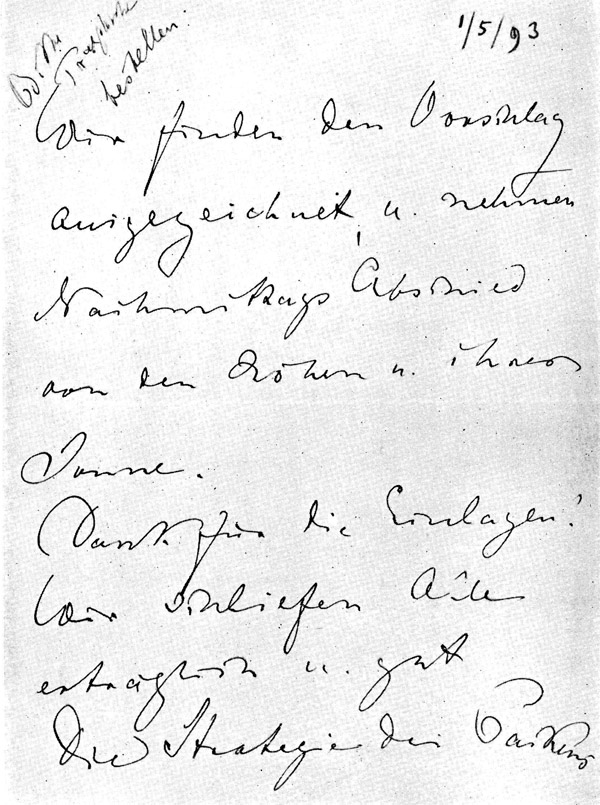 1/5/93
Bitte
bestellen.
Wir finden den Vorschlag
ausgezeichnet u. nehmen
Nachmittags Abschied
von den Höhen u. ihrer
Sonne.
Dank für die Einlagen!
Wir schliefen Alle
erträglich u. gut
Die Strategie des Packens